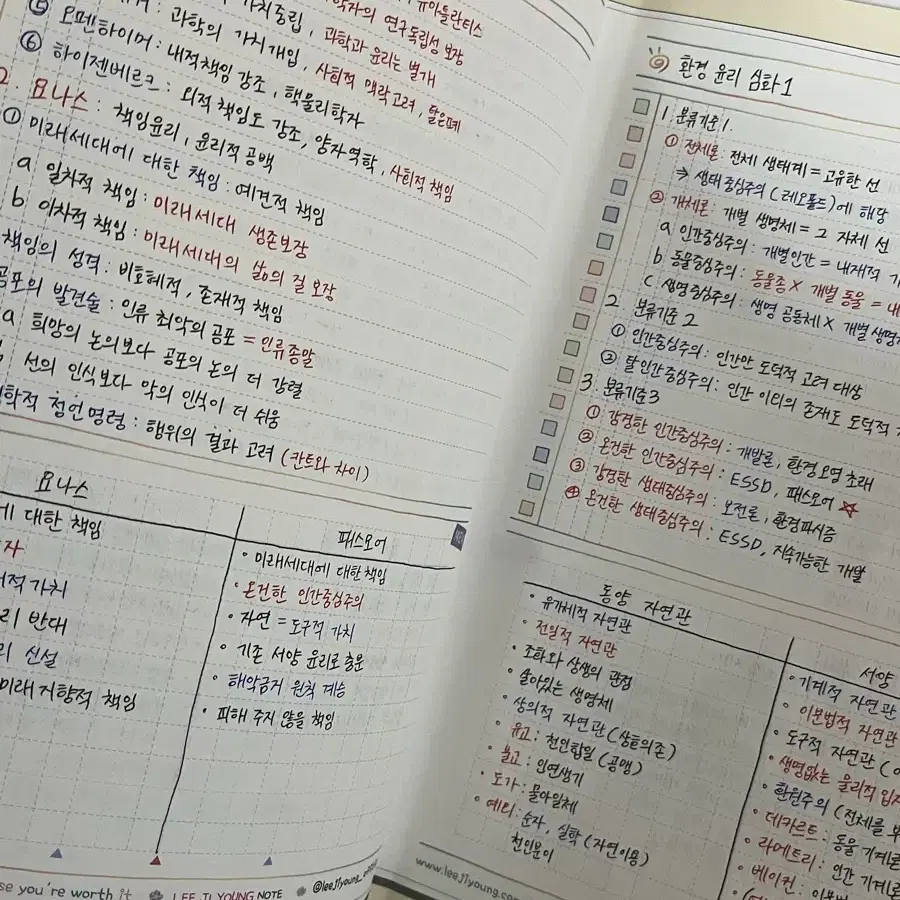 유아틀란티스
가치중립, 과학자의 연구독립성 보장
⑤ : 과학의 가치개입, 과학과 윤리는 별개
사회적 맥락고려, 탈은폐
⑥ 오펜하이머: 내적책임 강조, 핵물리학자
하이젠베르크: 외적 책임도 강조, 양자역학, 사회적 책임
2. 요나스: 책임윤리, 윤리적 공백
① 미래세대에 대한 책임: 예견적 책임
a 일차적 책임: 미래세대 생존보장
b 이차적 책임: 미래세대의 삶의 질 보장
책임의 성격: 비호혜적, 존재적 책임
공포의 발견술: 인류 최악의 공포 = 인류종말
a 희망의 논의보다 공포의 논의 더 강렬
선의 인식보다 악의 인식이 더 쉬움
학적 정언명령: 행위의 결과 고려 (칸트와 차이)
요나스
에 대한 책임
자
적가치
리 반대
리 신설
미래지향적 책임
패스모어
• 미래세대에 대한책임
• 온건한 인간중심주의
• 자연 = 도구적 가치
• 기존 서양 윤리로 충분
• 해악금지 원칙 계승
• 피해 주지 않을 책임
se you're worth it LEE JI YOUNG NOTE @leejiyoung_
9 환경 윤리 심화 1
1. 분류기준1.
① 전체론: 전체 생태계 = 고유한 선
⇒ 생태중심주의 (레오폴드)에 해당
② 개체론: 개별 생명체 = 그 자체 선
a 인간중심주의: 개별인간 = 내재적 가
b 동물중심주의: 동물종 X 개별 동물 = 내
c 생명중심주의: 생명 공동체 X 개별생명
2 분류기준 2
① 인간중심주의: 인간만 도덕적 고려 대상
② 탈인간중심주의: 인간 이외의 존재도 도덕적
3. 분류기준3
① 강경한 인간중심주의: 개발론, 환경오염 초래
② 온건한 인간중심주의: ESSD, 패스모어 ☆
③ 강경한 생태중심주의: 보전론, 환경파시즘
④ 온건한 생태중심주의: ESSD, 지속가능한 개발
동양 자연관
• 유기체적 자연관
• 전일적 자연관
• 조화와 상생의 관점
• 살아있는 생명체
• 상의적 자연관 (상호의존)
• 유교: 천인합일 (공맹)
• 불교: 인연생기
• 도가: 물아일체
• 예외: 순자, 실학 (자연이용)
천인분이
서양
• 기계적 자연관
• 이분법적 자연관
• 도구적 자연관 (
• 생명없는 물리적 입자
• 환원주의 (전체를 부
• 데카르트: 동물 기계론
• 라메트리: 인간 기계론
• 베이컨: 이분법
www.leejiyoung.com